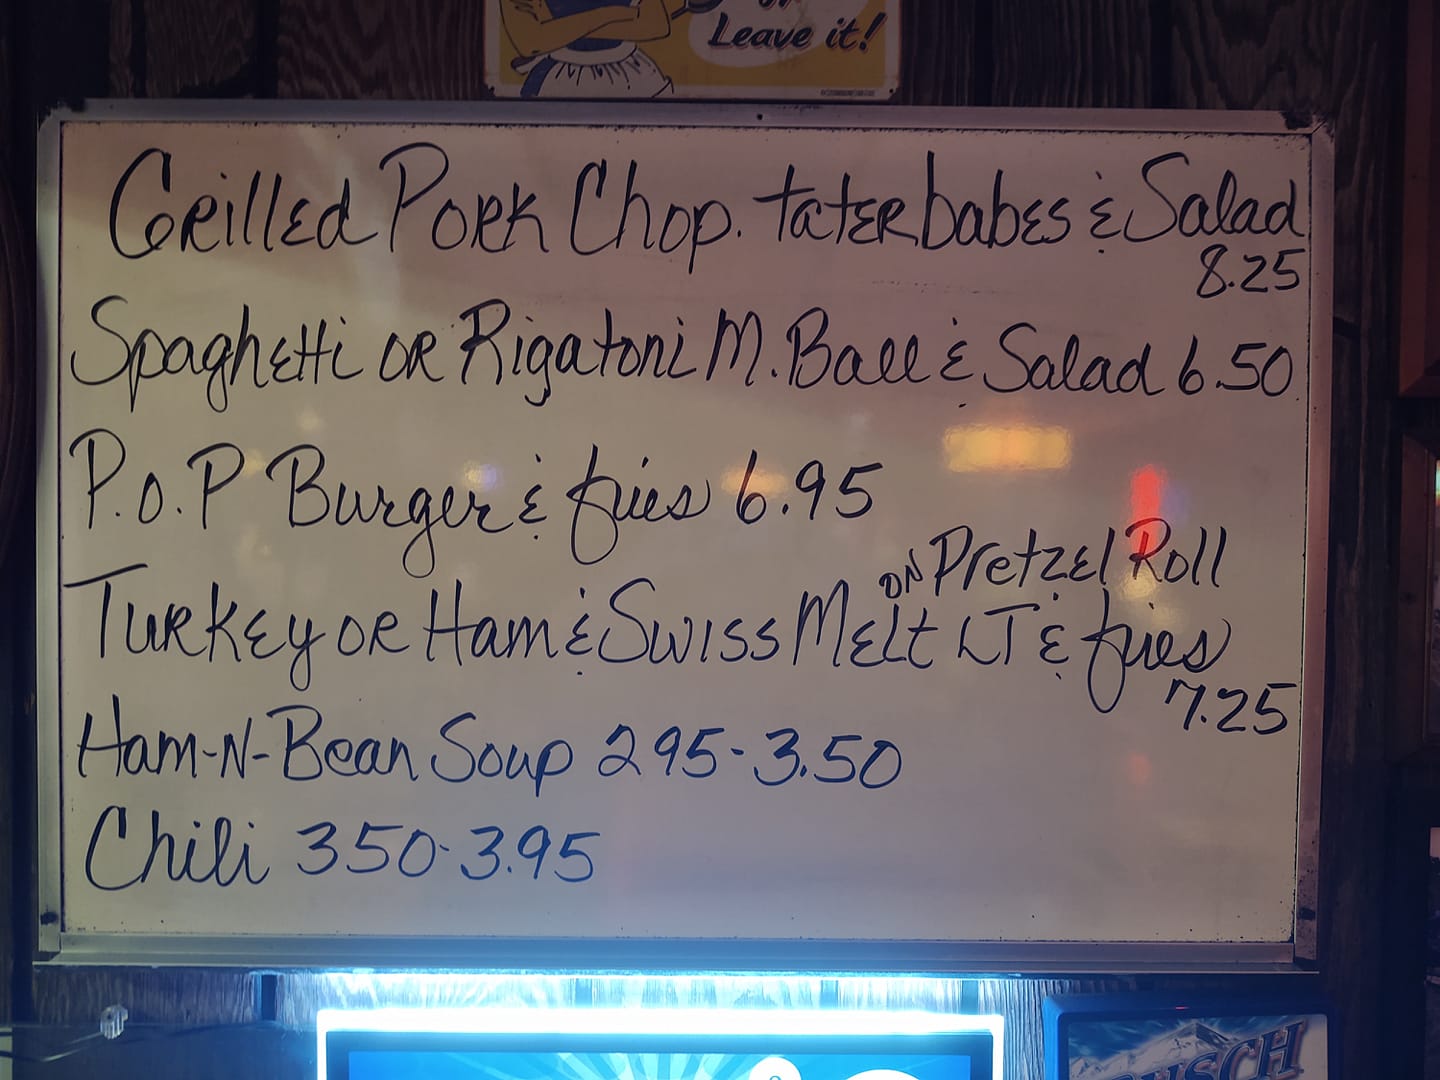 Leave it!
Grilled Pork Chop. tater babes & Salad
8.25
Spaghetti or Rigatoni M. Ball & Salad 6.50
P.O.P Burger & fries 6.95
on Pretzel Roll
Turkey or Ham & Swiss Melt LT & fries
7.25
Ham-N-Bean Soup 295-3.50
Chili 350-3.95
BUSCH